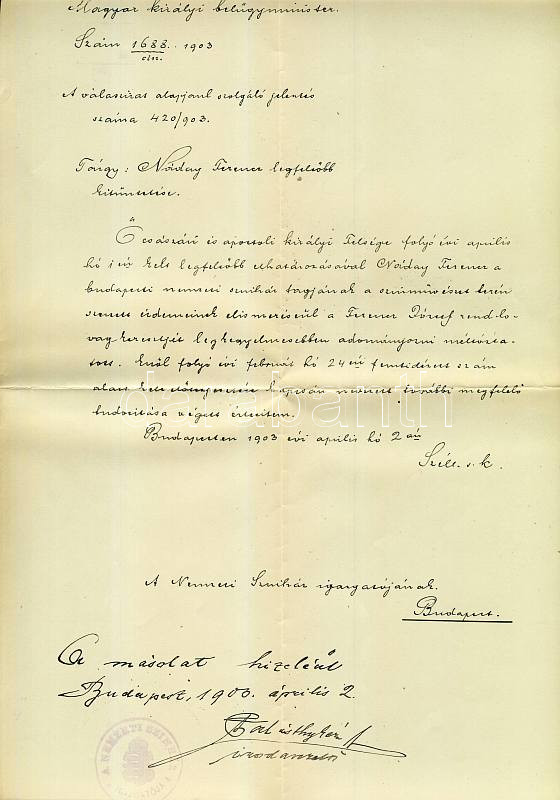 Magyar királyi belügyminister.
Szám 1688. 1903
eln.
A válaszirat alapjául szolgáló jelentés
száma 420/903.
Tárgy: Náday Ferencz legfelsőbb
kitüntetése.
Ő császári és apostoli királyi Felsége folyó évi április
hó 1 én kelt legfelsőbb elhatározásával Náday Ferencz a
budapesti nemzeti szinház tagjának a szinművészet terén
szerzett érdemeinek elismeréseül a Ferencz József rend lo-
vagkeresztjét legkegyelmesebben adományozni méltózta-
tott. Erről folyó évi február hó 24 én fentidézett szám
alatt kelt előterjesztése kapcsán nemzeti további megfelelő
tudositása végett értesitem.
Budapesten 1903 évi április hó 2 án
Széll s. k.
A Nemzeti Szinház igazgatójának.
Budapest.
A másolat hiteléül
Budapest, 1903. április 2.
irodavezető
A NEMZETI SZINH
IGAZGATÓJA
darabanth